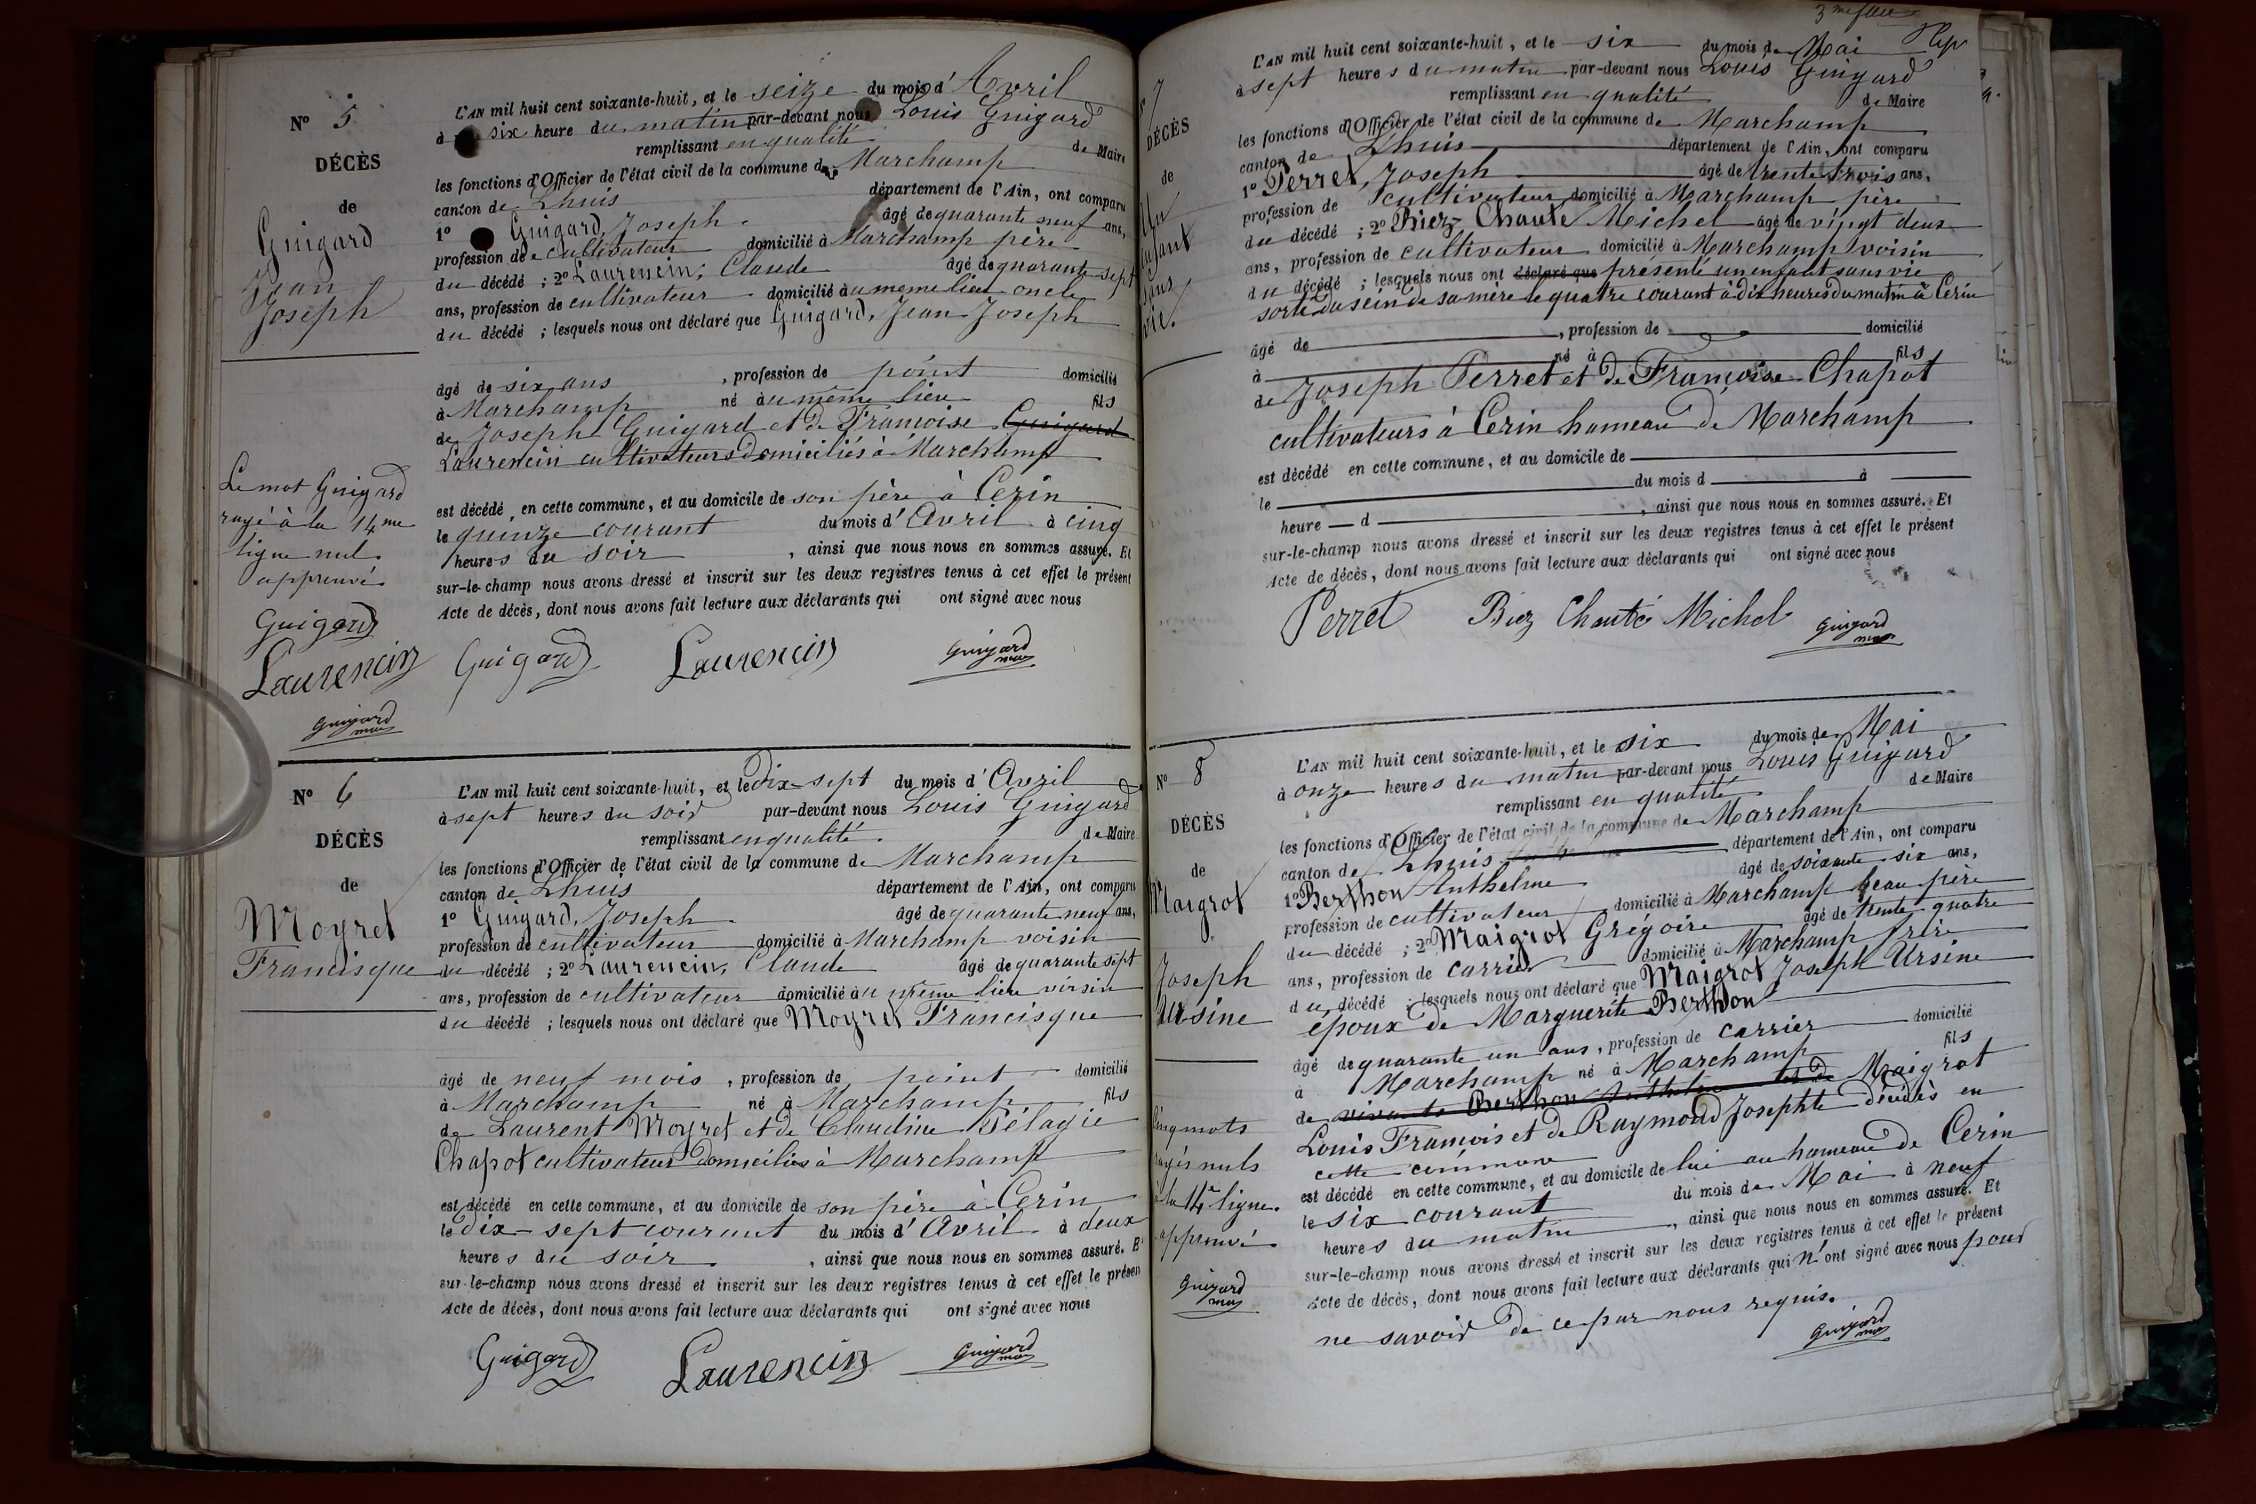 N° 5
DÉCÈS
de
Guigard
Jean
Joseph
L'AN mil huit cent soixante-huit, et le seize du mois d'Avril
à six heure du matin par-devant nous Louis Guigard
remplissant en qualité de Maire
les fonctions d'Officier de l'état civil de la commune de Marchamp
canton de Lhuis département de l'Ain, ont comparu
1° Guigard, Joseph âgé de quarante neuf ans,
profession de cultivateur domicilié à Marchamp père
du décédé ; 2° Laurencin, Claude âgé de quarante sept
ans, profession de cultivateur domicilié au même lieu oncle
du décédé ; lesquels nous ont déclaré que Guigard, Jean Joseph
âgé de six ans , profession de point domicilié
à Marchamp né au même lieu fils
de Joseph Guigard et de Francoise Guigard
Laurencin cultivateurs domiciliés à Marchamp
est décédé en cette commune, et au domicile de son père à Cerin
le quinze courant du mois d'Avril à cinq
heures du soir , ainsi que nous nous en sommes assuré. Et
sur-le-champ nous avons dressé et inscrit sur les deux registres tenus à cet effet le présent
Acte de décès, dont nous avons fait lecture aux déclarants qui ont signé avec nous
Guigard Laurencin Guigard maire
Le mot Guigard
rayé à la 14me
ligne nul
approuvé
Guigard
Laurencin
Guigard
maire
N° 6
DÉCÈS
de
Moyret
Francisque
L'AN mil huit cent soixante-huit, et le dix-sept du mois d'Avril
à sept heures du soir par-devant nous Louis Guigard
remplissant en qualité de Maire
les fonctions d'Officier de l'état civil de la commune de Marchamp
canton de Lhuis département de l'Ain, ont comparu
1° Guigard, Joseph âgé de quarante neuf ans,
profession de cultivateur domicilié à Marchamp voisin
du décédé ; 2° Laurencin, Claude âgé de quarante sept
ans, profession de cultivateur domicilié au même lieu voisin
du décédé ; lesquels nous ont déclaré que Moyret Francisque
âgé de neuf mois , profession de point domicilié
à Marchamp né à Marchamp fils
de Laurent Moyret et de Claudine Pélagie
Chapot cultivateurs domiciliés à Marchamp
est décédé en cette commune, et au domicile de son père à Cerin
le dix-sept courant du mois d'Avril à deux
heures du soir , ainsi que nous nous en sommes assuré. Et
sur-le-champ nous avons dressé et inscrit sur les deux registres tenus à cet effet le présen
Acte de décès, dont nous avons fait lecture aux déclarants qui ont signé avec nous
Guigard Laurencin Guigard maire
3me
7
DÉCÈS
de
sans
vie.
L'AN mil huit cent soixante-huit, et le six du mois de Mai
à sept heures du matin par-devant nous Louis Guigard
remplissant en qualité de Maire
les fonctions d'Officier de l'état civil de la commune de Marchamp
canton de Lhuis département de l'Ain, ont comparu
1° Perret, Joseph âgé de trente trois ans,
profession de cultivateur domicilié à Marchamp père
du décédé ; 2° Biez-Chauté Michel âgé de vingt deux
ans, profession de cultivateur domicilié à Marchamp voisin
du décédé ; lesquels nous ont déclaré que présenté un enfant sans vie
sorti du sein de sa mère le quatre courant à dix heures du matin à Cerin
âgé de , profession de domicilié
à né à fils
de Joseph Perret et de Françoise Chapot
cultivateurs à Cerin hameau de Marchamp
est décédé en cette commune, et au domicile de
le du mois d à
heure d , ainsi que nous nous en sommes assuré. Et
sur-le-champ nous avons dressé et inscrit sur les deux registres tenus à cet effet le présent
Acte de décès, dont nous avons fait lecture aux déclarants qui ont signé avec nous
Perret Biez Chauté Michel Guigard maire
N° 8
DÉCÈS
de
Maigrot
Joseph
Ursine
L'AN mil huit cent soixante-huit, et le six du mois de Mai
à onze heures du matin par-devant nous Louis Guigard
remplissant en qualité de Maire
les fonctions d'Officier de l'état civil de la commune de Marchamp
canton de Lhuis département de l'Ain, ont comparu
1° Berthon Anthelme âgé de soixante six ans,
profession de cultivateur domicilié à Marchamp beau père
du décédé ; 2° Maigrot Grégoire âgé de trente quatre
ans, profession de carrier domicilié à Marchamp frère
du décédé ; lesquels nous ont déclaré que Maigrot Joseph Ursine
époux de Marguerite Berthon
âgé de quarante un ans , profession de carrier domicilié
à Marchamp né à Marchamp fils
de Berthon Maigrot
Louis François et de Raymond Josephte décédés en
cette commune
est décédé en cette commune, et au domicile de lui au hameau de Cerin
le six courant du mois de Mai à neuf
heures du matin , ainsi que nous nous en sommes assuré. Et
sur-le-champ nous avons dressé et inscrit sur les deux registres tenus à cet effet le présent
Acte de décès, dont nous avons fait lecture aux déclarants qui n'ont signé avec nous pour
ne savoir de ce par nous requis.
Guigard maire
Cinq mots
rayés nuls
à la 14e ligne.
approuvé
Guigard
maire